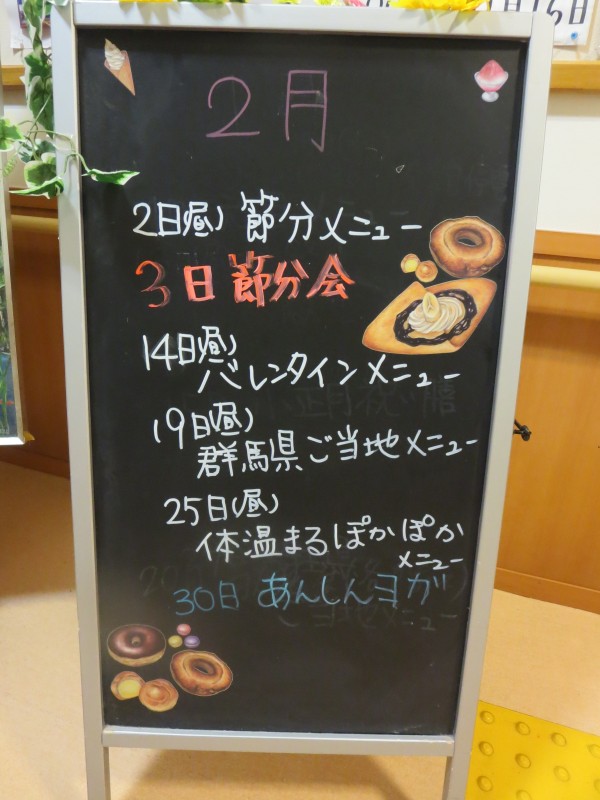 月16日
2月
2日(昼) 節分メニュー
3日 節分会
14日(昼)
バレンタインメニュー
19日(昼)
群馬県ご当地メニュー
25日(昼)
体温まるぽかぽか
メニュー
30日 あんしんヨガ